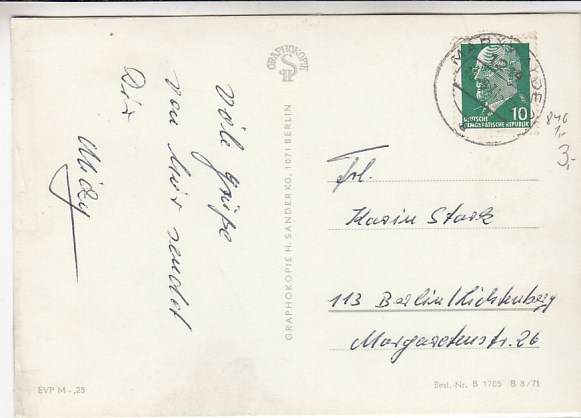 Viele Grüße
von hier sendet
Dir
Micky
GRAPHOKOPIE
GRAPHOKOPIE H. SANDER KG, 1071 BERLIN
DEUTSCHE
DEMOKRATISCHE REPUBLIK
10
3,-
Frl.
Karin Stark
113 Berlin/Lichtenberg
Margaretenstr. 26
EVP M -,25
Best.-Nr. B 1705 B 8/71